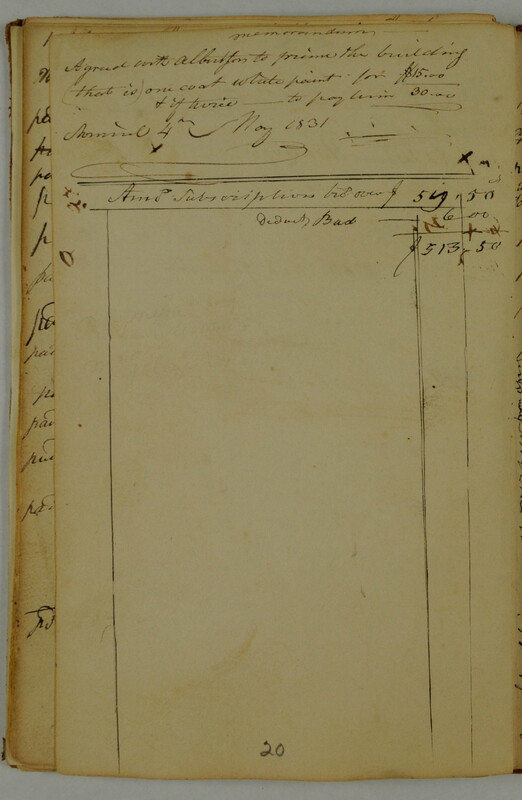 memorandum
Agreed with Albertson to prime the building
(that is) one coat white paint for $15.00
& if twice to pay him 30.00
4th May 1831
Amt Subscription bro over $ 519.50
Deduct, Bad 6 00
$ 513.50
20